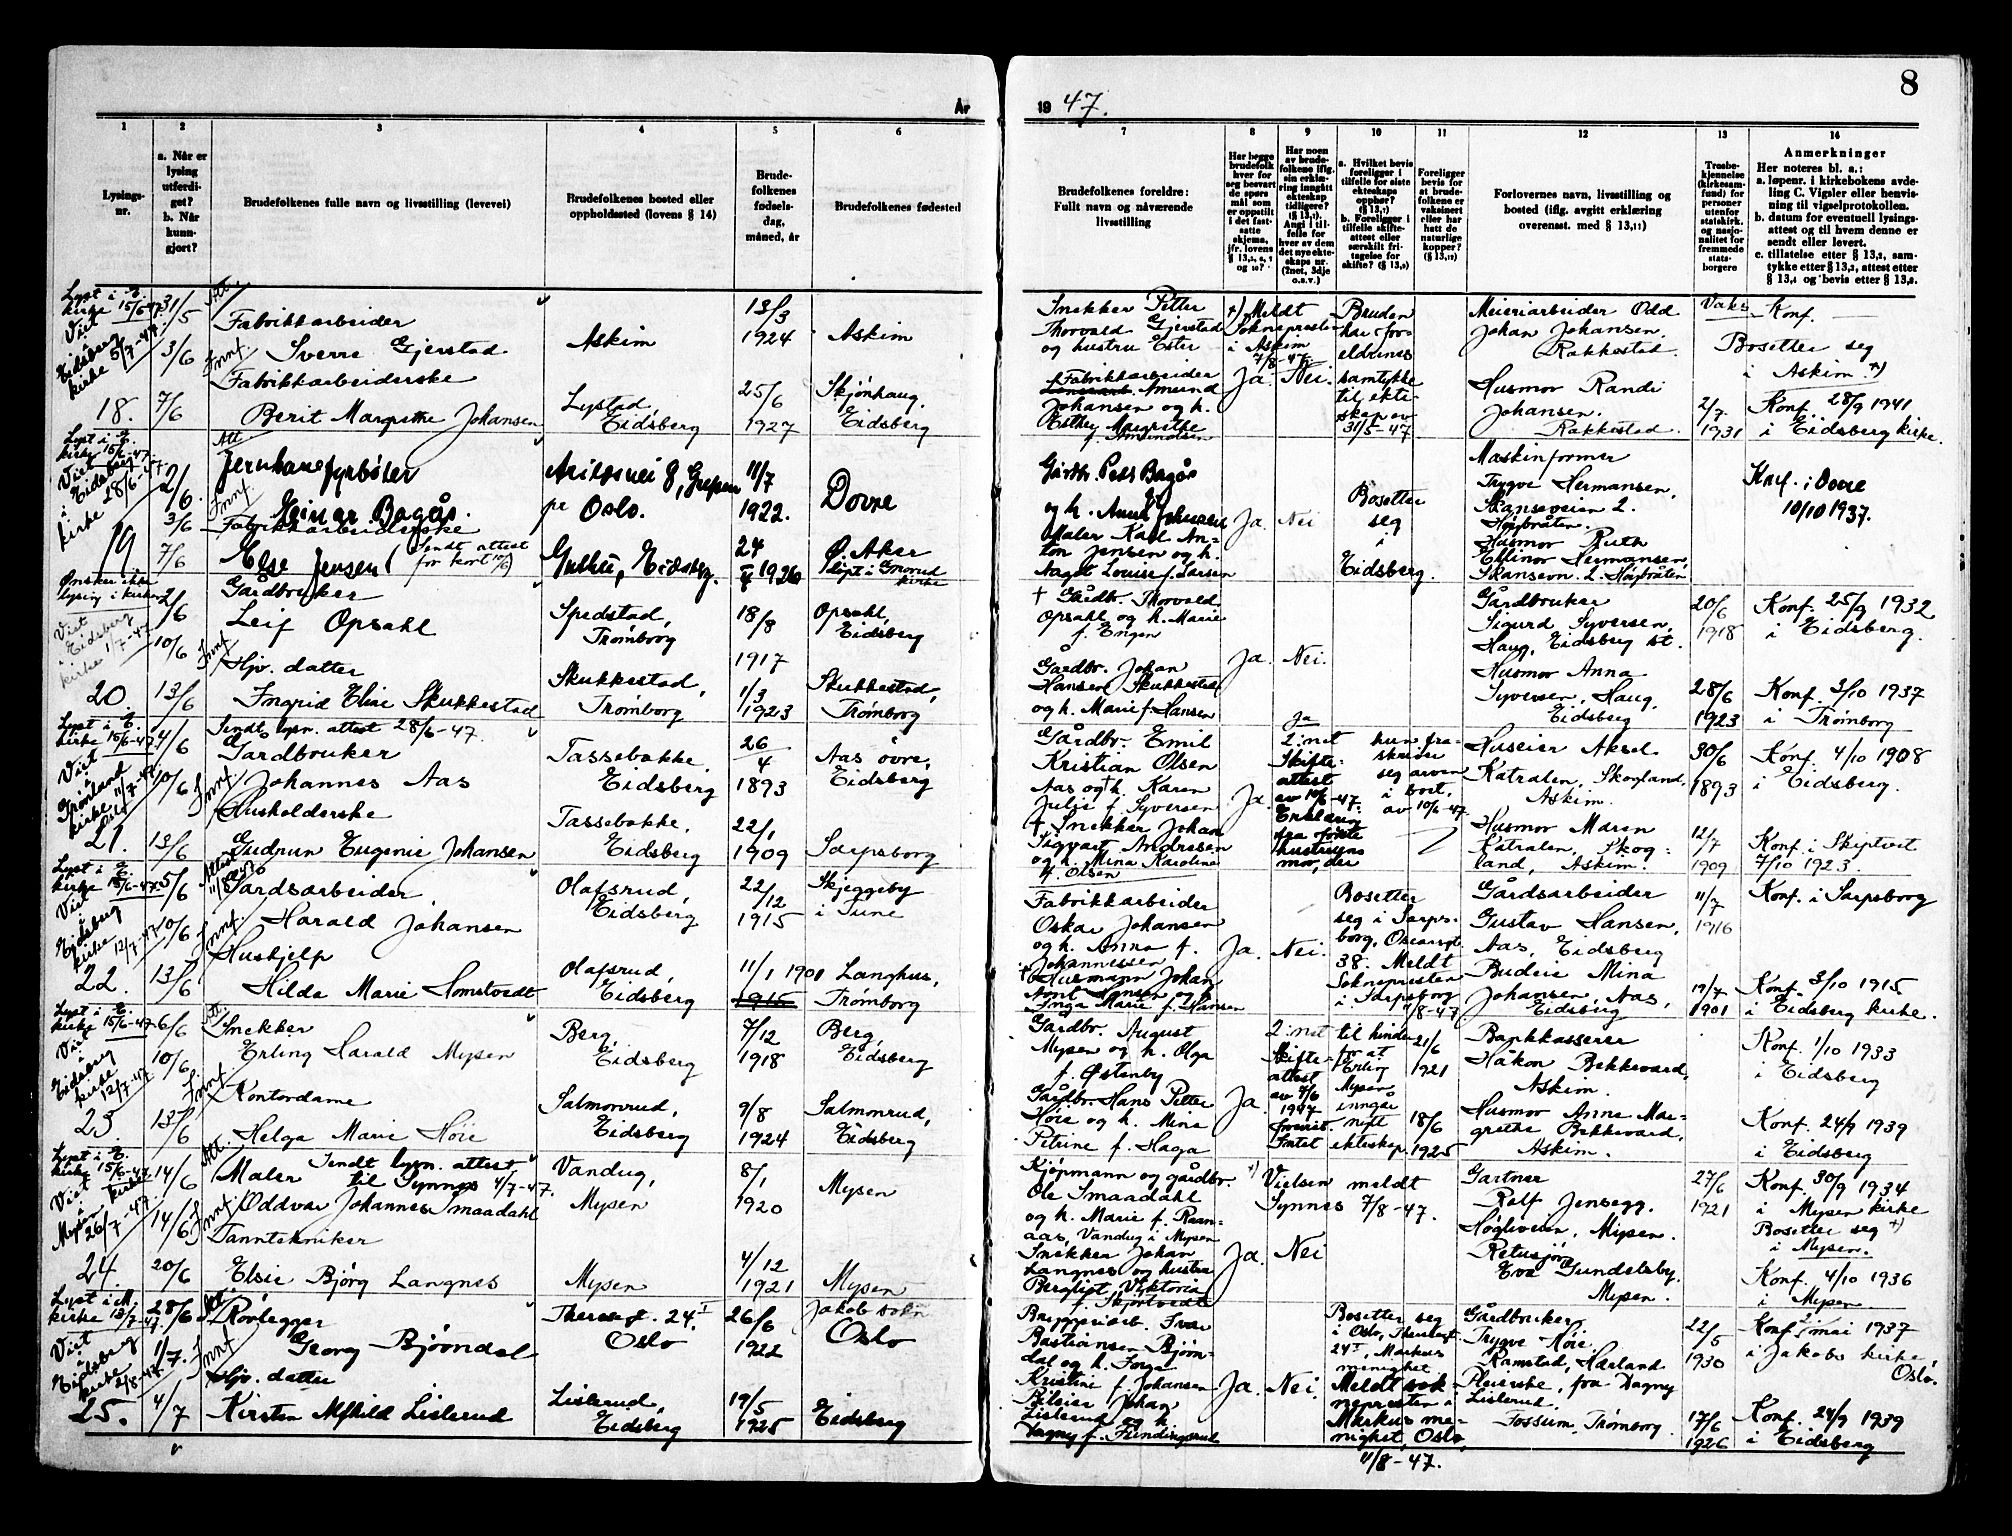 8
År
19 47.
1
2
3
4
5
6
7
8
9
10
11
12
13
14
Lysings-
nr.
a. Når er
lysing
utferdi-
get?
b. Når
kunn-
gjort?
Brudefolkenes fulle navn og livsstilling (levevei)
Brudefolkenes bosted eller
oppholdssted (lovens § 14)
Brude-
folkenes
fødsels-
dag,
måned, år
Brudefolkenes fødested
Brudefolkenes foreldre:
Fullt navn og nåværende
livsstilling
Har begge
brudefolk
hver for
seg besvart
de spørs-
mål som
er oppstilt
i det fast-
satte
skjema,
Har noen
av brude-
folkene iflg.
sin erklæ-
ring inngått
ekteskap
tidligere?
Angi i til-
felle for
hver av dem
det nye ekte-
skaps nr.
(2net, 3dje
o.s.v.)
a. Hvilket bevis
foreligger i
tilfelle for siste
ekteskaps
opphør?
b. Foreligger i
tilfelle skifte-
attest eller
særskilt fri-
tagelse for
skifte?
Foreligger
bevis for
at brude-
folkene er
vaksinert
eller har
hatt de
naturlige
kopper?
Forlovernes navn, livsstilling og
bosted (iflg. avgitt erklæring
overensst. med § 13,11)
Trosbe-
kjennelse
(kirkesam-
fund) for
personer
utenfor
statskirk.
og nasjo-
nalitet for
fremmede
stats-
borgere
Anmerkninger
Her noteres bl. a.:
a. løpenr. i kirkebokens avde-
ling C. Vigsler eller henvis-
ning til vigselprotokollen.
b. datum for eventuell lysings-
attest og til hvem denne er
sendt eller levert.
c. tillatelse etter § 13,2, sam-
tykke etter § 13,3, attest etter
§ 13,4 og bevis etter § 13,8.
Lyst i E.
kirke 15/6-47
Viet
i
Eidsberg
kirke 5/7-47.
18.
31/5
3/6
7/6
Att.
Fabrikkarbeider
Sverre Gjerstad
Fabrikkarbeiderske
Berit Margrethe Johansen
Askim
Lystad
Eidsberg
13/3
1924
25/6
1927
Askim
Skjønhaug.
Eidsberg
Snekker Petter
Thorvald Gjerstad
og hustru Ester
Fabrikkarbeider
Amund
Johansen og h.
Esther Margrethe
f. Amundsen
+) Meldt
Sokneprester
i Askim
7/8-47
Ja.
Nei.
Bruden
har for-
eldrenes
samtykke
til ekte-
skap av
31/5-47
Meieriarbeider Odd
Johan Johansen,
Rakkestad.
Husmor Randi
Johansen.
Rakkestad.
Vaks.
2/7.
1931
Konf.
Bosetter seg
i Askim +)
Konf. 28/9 1941
i Eidsberg kirke.
Lyst i E.
kirke 15/6-47.
Viet
i Eidsberg
kirke 28/6-47
19
2/6.
3/6
7/6
Att
Jernbanefyrbøter
Einar Bagås.
Fabrikkarbeiderske
Else Jensen (Sendt attest
for kort 10/6)
Arildsvei 8, Grefsen
pr Oslo.
Eidsberg.
11/7
1922.
24
V 1926
Dovre
Ø. Aker
lyst i Grorud
kirke
Gårdbr. Pell Bagås
og h. Anna Johnsen
Maler Karl An-
ton Jensen og h.
Aagot Louise f. Larsen
Ja.
Nei
Bosetter
seg
i
Eidsberg.
Maskinformer
Trygve Hermansen,
Skanseveien 2.
Høybråten.
Husmor Ruth
Ellinor Hermansen,
Skansevn. 2. Høybråten
Konf. i Dovre
10/10 1937.
Ønsker ikke
lysing i kirken
Viet
i Eidsberg
kirke 1/7-47
20.
2/6
10/6
13/6
Gårdbruker
Leif Opsahl
Hjv. datter
Ingrid Eline Skukkestad
Spedstad,
Trømborg
Skukkestad,
Trømborg
18/8
1917
1/3
1923
Opsahl,
Eidsberg
Skukkestad,
Trømborg
+ Gårdbr. Thorvald
Opsahl og h. Marie
f. Engen
Gårdbr. Johan
Hansen Skukkestad
og h. Marie f. Hansen
Ja.
Nei.
Gårdbruker
Sigurd Syversen,
Haug, Eidsberg st.
Husmor Anna
Syversen, Haug,
Eidsberg
20/6
1918
28/6
1923
Konf. 25/9 1932
i Eidsberg.
Konf. 3/10 1937
i Trømborg
Lyst i E.
kirke 15/6-47
Viet
i
Grønland
kirke 11/7-47
Oslo
21.
4/6
10/6
13/6
Sendt lysn. attest 28/6-47.
Gårdbruker
Johannes Aas
Husholderske
Gudrun Eugenie Johansen
Tassebakke.
Eidsberg
Tassebakke,
Eidsberg
26/4
1893
22/1
1909
Aas øvre,
Eidsberg
Sarpsborg
Gårdbr. Emil
Kristian Olsen
Aas og +h. Karen
Julie f. Syversen
+ Snekker Johan
Sigvart Andresen
og h. Mina Karoline
f. Olsen
Ja.
ja
2:net
Skifte-
attest
av 10/6-47.
Erklæring
fra første
hustruens
mor, der
hun fra-
skriver
seg arven
i bort,
av 10/6-47
Huseier Aksel
Katralen, Skogland,
Askim.
Husmor Maren
Katralen, Skog-
land, Askim.
30/6
1893
12/7
1909
Konf. 4/10 1908
i Eidsberg.
Konf. i Skiptvet
7/10 1923.
Lyst i E.
kirke 15/6-47
Viet
i
Eidsberg
kirke 12/7-47
22.
5/6
10/6
13/6
Attest
Gårdsarbeider
Harald Johansen
Hushjelp
Hilda Marie Homstvedt
Olafsrud,
Eidsberg
Olafsrud,
Eidsberg
22/12
1915
11/1 1901
1915
Skjeggeby
i Tune
Langhus,
Trømborg
Fabrikkarbeider
Oskar Johansen
og h. Anna f.
Johannessen
+ Husmann Johan
Inga Marie f. Hansen
Ja.
Nei.
Bosetter
seg i Sarps-
borg, Oscarsgt.
38. Meldt
Sokneprester
i Sarpsborg
7/8-47
Gårdsarbeider
Gustav Hansen,
Aas, Eidsberg
Budeie Mina
Johansen, Aas,
Eidsberg
11/7
1916
19/7
1901
Konf. i Sarpsborg
Konf. 3/10 1915
i Eidsberg kirke.
Lyst i E.
kirke 15/6-47
Viet
i
Eidsberg
kirke
12/7-47
23.
6/6
10/6
13/6
Att.
Snekker
Erling Harald Mysen
Kontordame
Helga Marie Høie
Berg,
Eidsberg
Salmonrud,
Eidsberg
7/12
1918
9/8
1924
Berg,
Eidsberg
Salmonrud,
Eidsberg
Gårdbr. August
Mysen og h. Olga
f. Østenby
Gårdbr. Hans Petter
Høie og h. Mina
Petrine f. Haga
Ja.
2:net
Skifte-
attest
av 7/6
1947
Intet
til hinder
for at
Erling
Mysen
inngår
nytt
ekteskap
21/6
1921
18/6
1925
Bankkasserer
Håkon Bekkevard,
Askim.
Husmor Anne Mar-
grethe Bekkevard,
Askim.
Konf. 1/10 1933
i Eidsberg
Konf. 24/9 1939
i Eidsberg
Lyst i E.
kirke 15/6-47
Viet
i
Mysen kirke
26/7-47
24.
14/6
14/6
20/6
Att.
Maler Sendt lysn. attest
til Synnes 4/7-47.
Oddvar Johannes Smaadahl
Tanntekniker
Elsie Bjørg Langnes
Vandug,
Mysen
Mysen
8/1
1920
4/12
1921
Mysen
Mysen
Kjøpmann og gårdbr.
Ole Smaadahl
og h. Marie f. Raan-
aas, Vandug i Mysen
Snekker Johan
Langnes og hustru
Bergliot Viktoria
f. Skjortvedt
+) Vielsen meldt
Synnes 7/8-47.
Ja.
Nei
Gartner
Rolf Jensegg.
Høgliveien, Mysen.
Retusjør
Eva Gundelsby.
Mysen.
27/6
1921
Konf. 30/9 1934
i Mysen kirke
Bosetter seg +)
i Mysen.
Konf. 4/10 1936
i Mysen
Lyst i M.
kirke 13/7-47
Viet
i
Eidsberg
kirke 2/8-47
25.
28/6
1/7.
4/7
Att.
Rørlegger
Georg Bjørndal
Hjv. datter
Kirsten Alfhild Lislerud
Theresegt. 24.I
Oslo
Lislerud,
Eidsberg
26/6
1922
19/5
1925
Jakob sokn
Oslo
Eidsberg
Bryggeriarb. Ivar
Bastiansen Bjørn-
dal og h. Borga
Kristine f. Johansen
Bileier Johan
Lislerud og h.
Dagny f. Fundingsrud
Ja.
Nei.
Bosetter seg
i Oslo, Theresegt.
24I, Markus
menighet
Meldt sok-
nepresten i
Markus me-
nighet, Oslo,
11/8-47.
Gårdbruker
Trygve Høie,
Ramstad, Hærland
Pleierske, frø. Dagny
Lislerud.
Fossum, Trømborg
22/5
1930
17/6
1926
Konf. 2/mai 1937
i Jakobs kirke
Oslo.
Konf. 24/9 1939
i Eidsberg